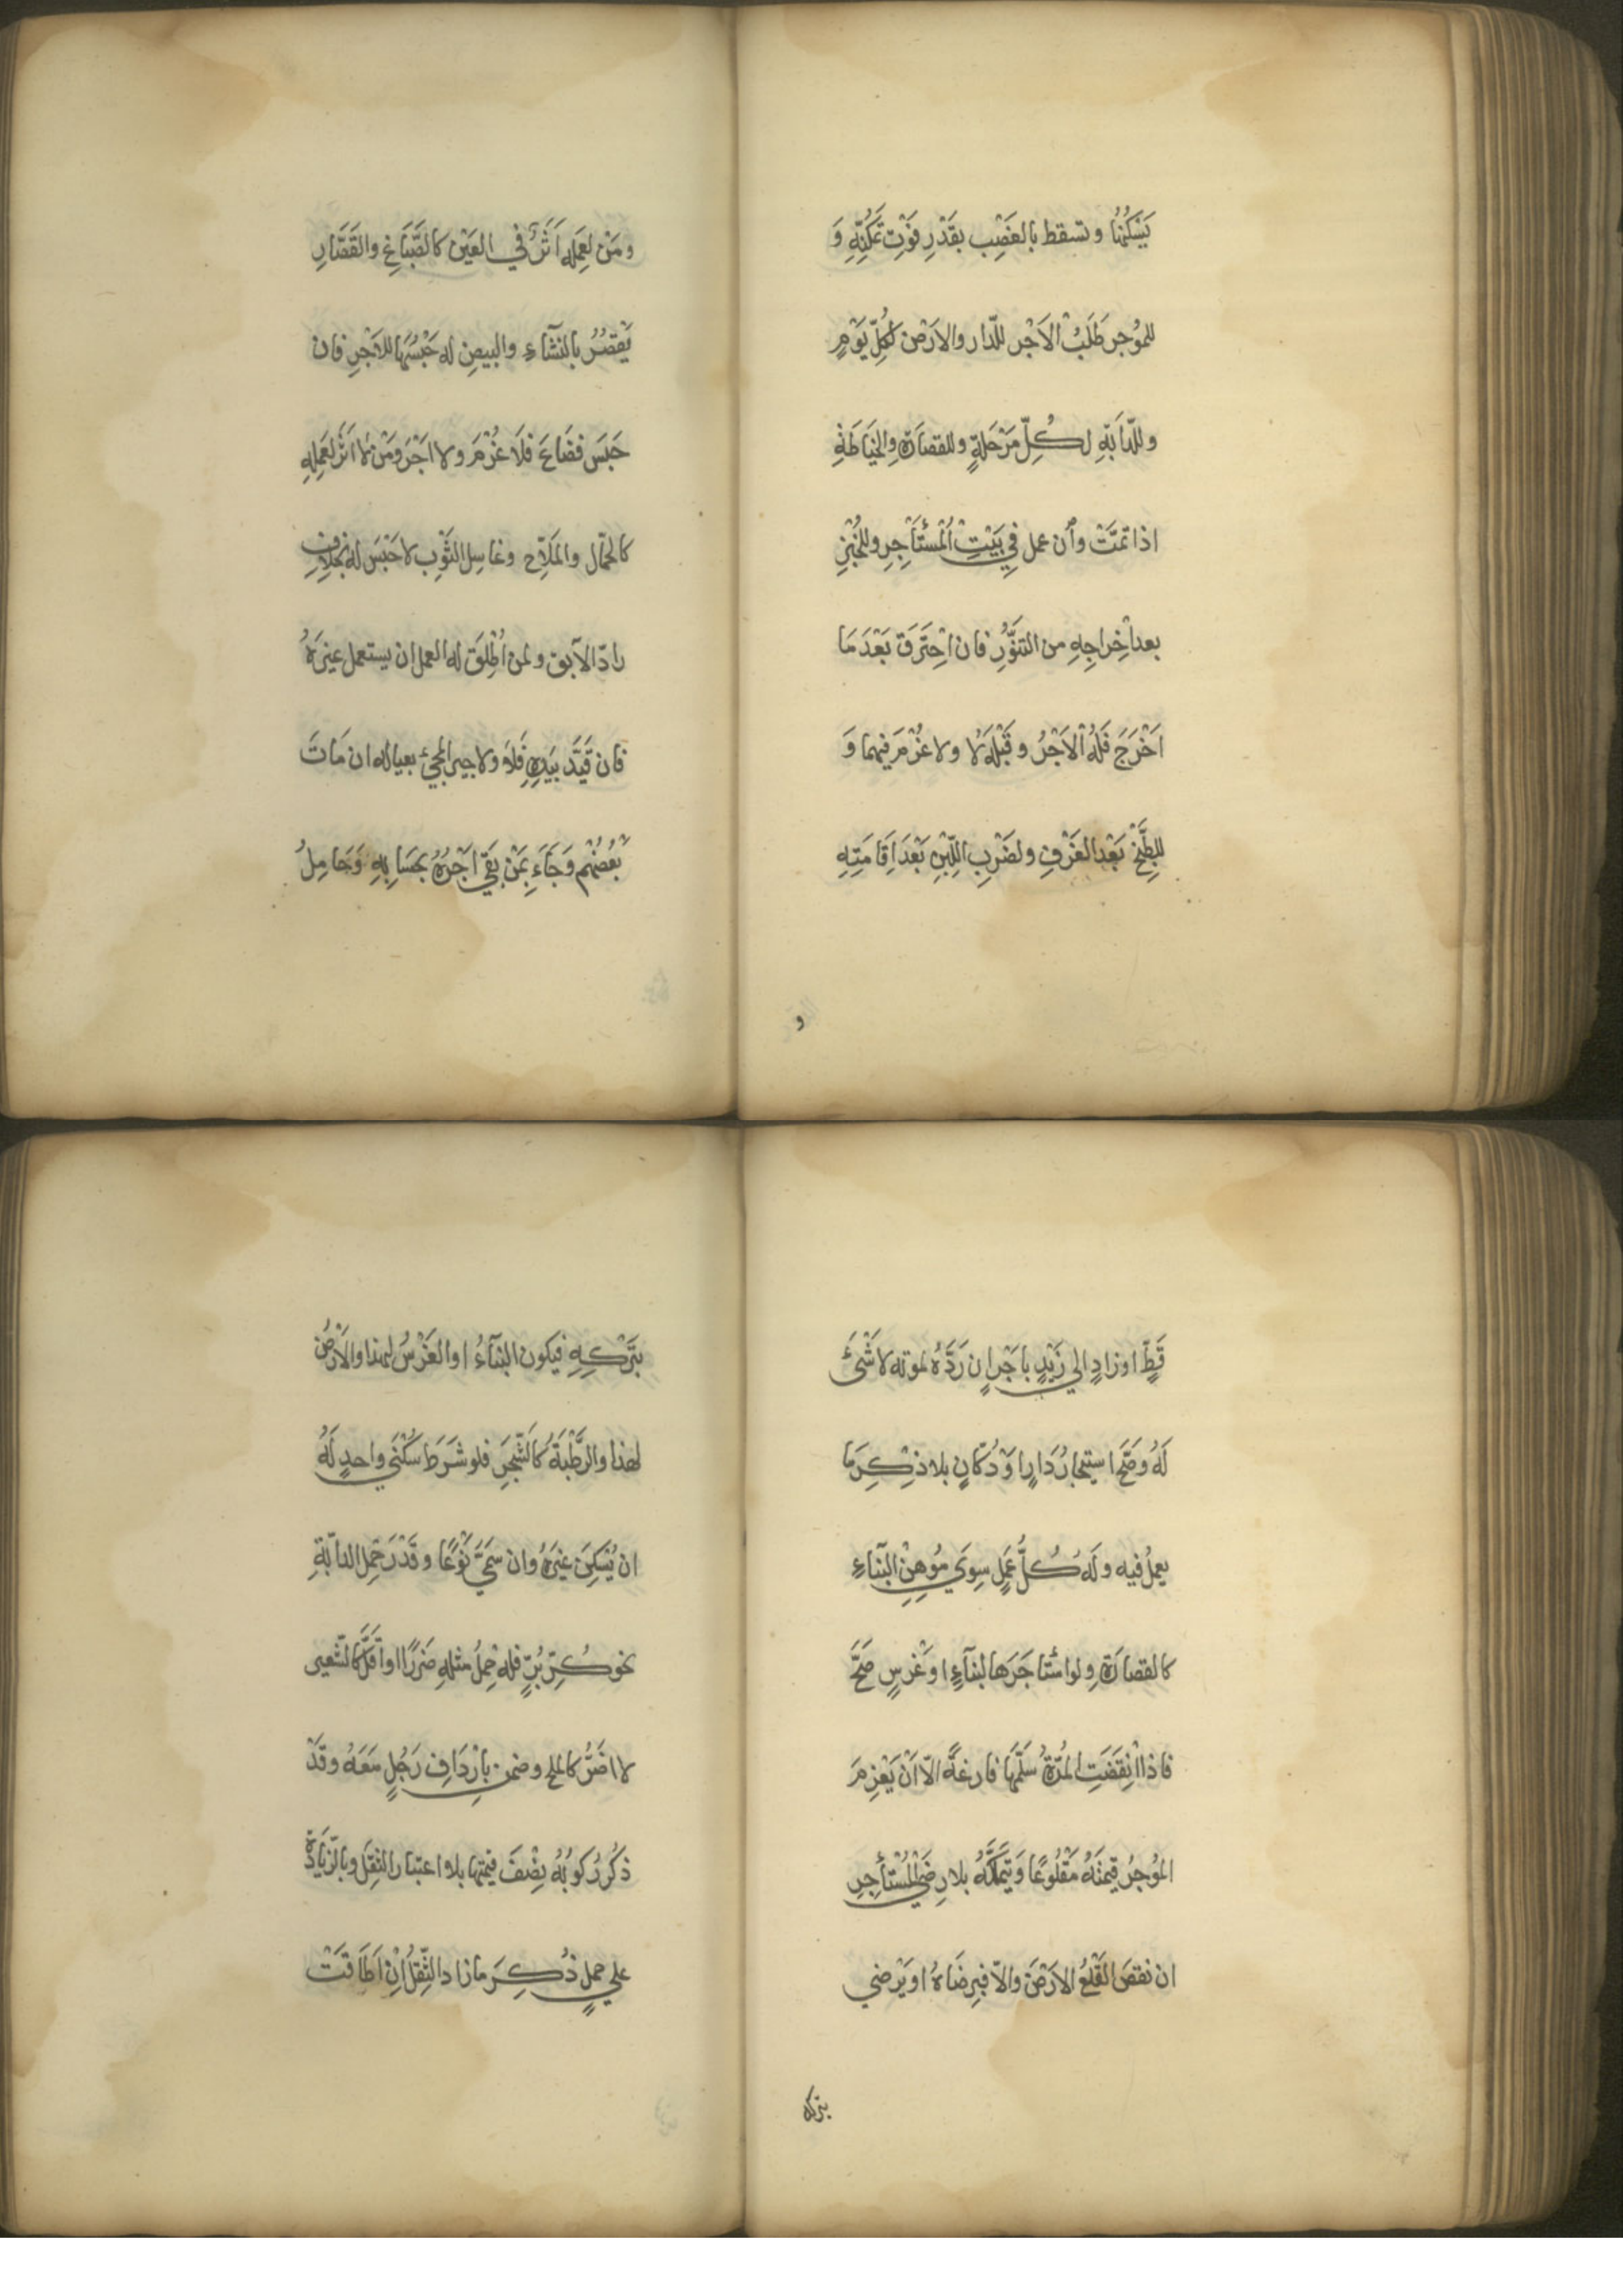 يَسْكُنْهَا وتسقط بالغَصْبِ بقَدْرِ فَوْتِ تَمَكُّنِهِ وَ
للمُوْجِر طَلَبُ الاَجْر للدّار والاَرْض لكُلِّ يَوْمٍ
وللدّابّةِ لكُلِّ مَرْحَلَةٍ وللقصَارَةِ والخِيَاطَةِ
اذا تمَّتْ وأن عمل في بَيْتِ المُسْتَأْجِرِ وللخُبْزِ
بعد اِخراجِهِ من التنَّوُّرِ فان احْتَرَقَ بَعْدَ مَا
اَخْرَجَ فَلَهُ الاَجْرُ وقَبْلَهُ لَا ولا غُرْمَ فيهما وَ
للطَّبْخِ بَعْدَ الغَرْفِ ولضَرْبِ اللَّبِنِ بَعْدَ اِقَامَتِهِ
و
ومَنْ لِعَمَلِهِ اَثَرٌ في العَيْن كالصَّبَّاغِ والقَصَّارِ
يَقْصُرُ بالنَّشَاءِ والبيضِ له حَبْسُهَا للاَجْرِ فان
حَبَسَ فضَاعَ فلَا غُرْمَ ولا اَجْرَ ومَنْ لَا اَثَرَ لعَمَلِهِ
كالحمّال والمَلّاح وغاسِلِ الثَّوْبِ لا حَبْسَ له بخِلَافِ
رادّ الآبق ولمن اُطْلِقَ له العمل ان يستعمل غيرَهُ
فان قَيَّدَ بيَدِهِ فَلَا ولاجير المجيئ بعياله ان مَاتَ
بَعْضُهُم وَجَاءَ بمَنْ بَقِيَ اَجْرُهُ بحِسَابِهِ وَحَامِلُ
قَطٍّ اوزادٍ الي زَيْدٍ باَجْرٍ ان رَدَّهُ لموته لا شَئَ
لَهُ وَصَحَّ استيجارُ دَارٍ اوْ دُكّانٍ بلا ذِكْرِ مَا
يعملُ فيه وله كُلُّ عَمَلٍ سِوَي مُوْهِنِ البنَآءِ
كالقصَارَةِ ولو استاجَرَها لبنآءٍ اوْ غَرْسٍ صَحَّ
فاذا انقَضَتِ المُدَّةُ سَلَّمَهَا فارغَةً الّا اَنْ يَغْرِمَ
المُوْجِرُ قيمَتَهُ مَقْلُوعًا وَيَتَمَلَّكَهُ بلا رِضَي المُسْتَأْجِرِ
ان نقصَ القَلْعُ الاَرْضَ والّا فبِرِضَاهُ اويَرْضي
بتركه
بتَرْكِهِ فيكون البنَآءُ اوالغَرْسُ لهذا والاَرْضُ
لهذا والرَّطْبَةُ كالشَّجَرِ فلو شَرَطَ سُكْنَي واحدٍ لَهُ
ان يُسْكِنَ غيرَهُ وان سَمَّيَ نَوْعًا وقَدْرَ حِمْلِ الدابّةِ
نحو كُرِّ بُرٍّ فله حِمْلُ مثلِهِ ضَرَرًا اواَقَلَّ كالشّعير
لا اضَرُّ كالملح وضمن باِرْدَافِ رَجُلٍ مَعَهُ وقَدْ
ذُكِرَ رُكوبُهُ نِصْفَ قيمتِها بلا اعتبار الثِقْلِ وبالزّيَادَة
علي حملٍ ذُكِرَ ما زاد الثِّقْلُ اِنْ اَطَاقَتْ